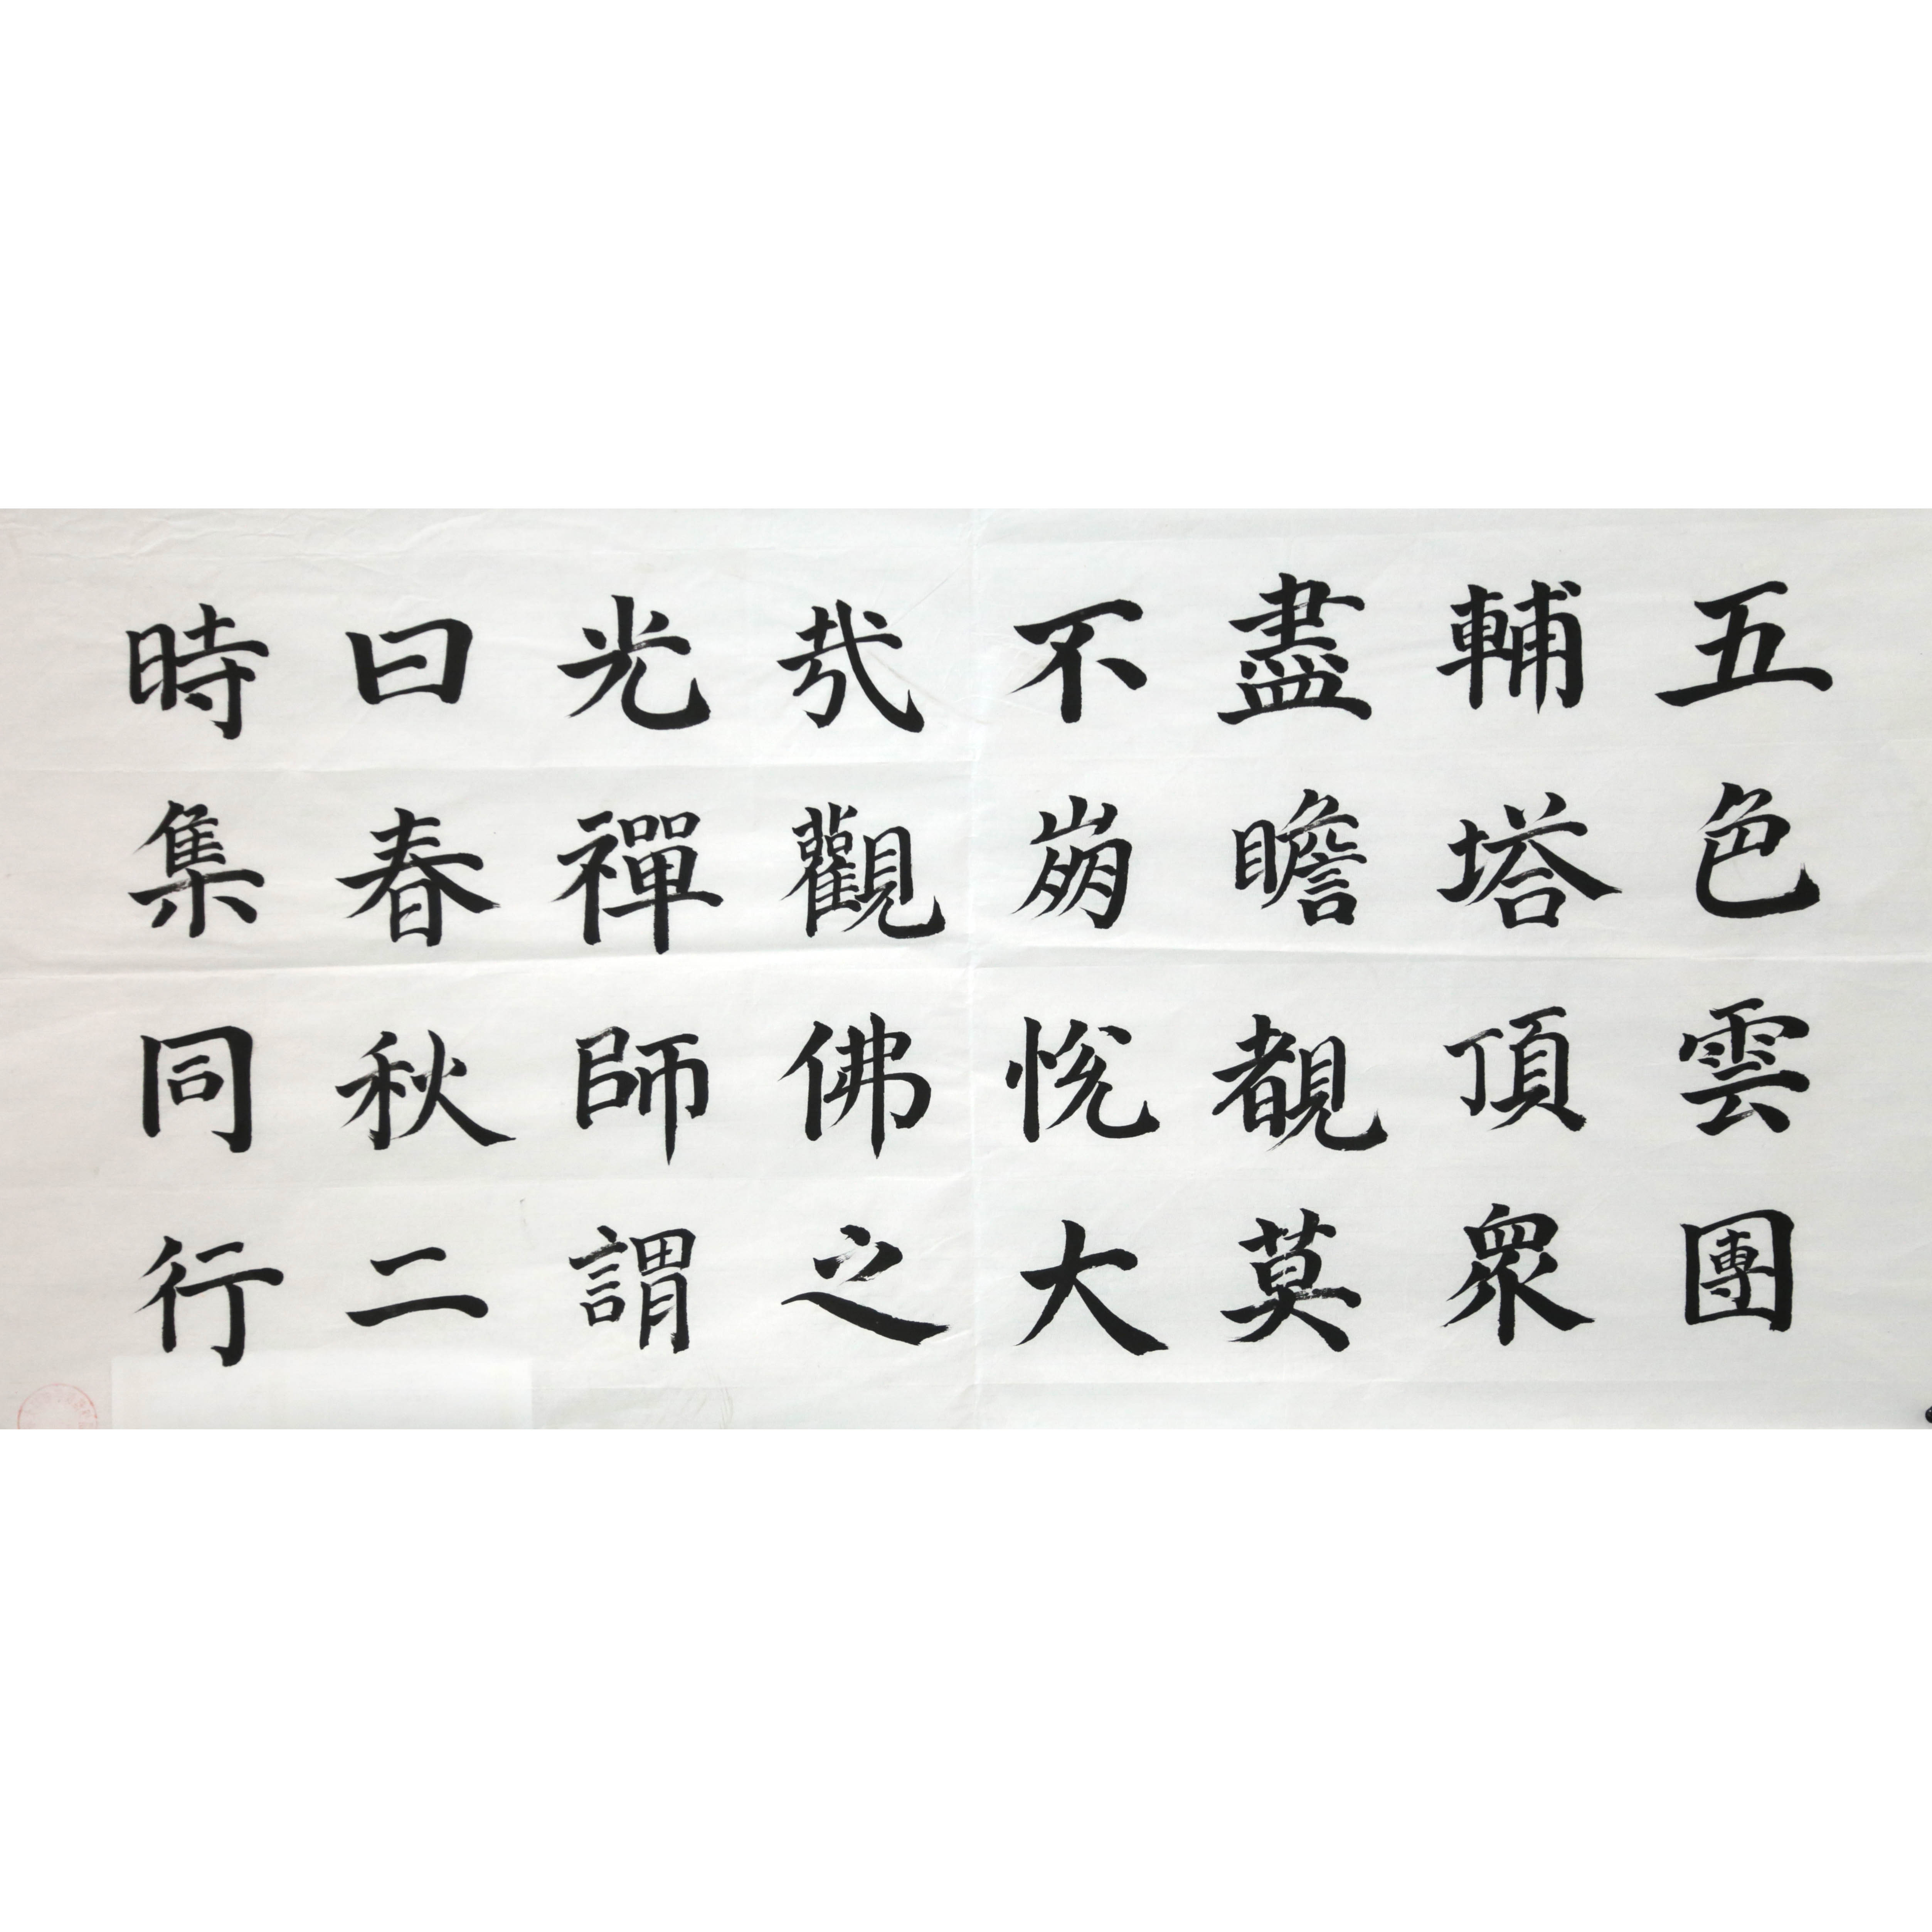 五色雲團
輔塔頂衆
盡瞻覩莫
不崩悅大
哉觀佛之
光禪師謂
曰春秋二
時集同行